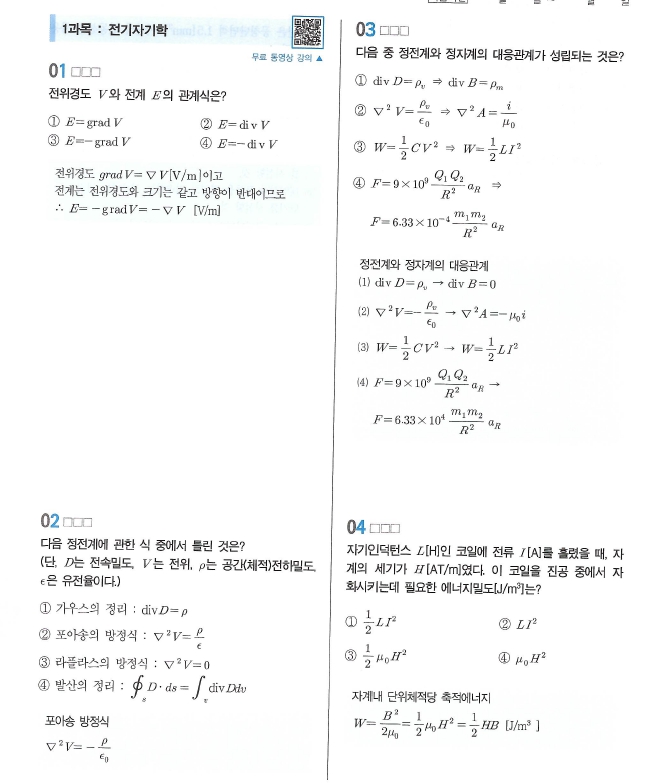 1과목 : 전기자기학
무료 동영상 강의 ▲
01 □□□
전위경도 V와 전계 E의 관계식은?
① E=grad V ② E=div V
③ E=-grad V ④ E=-div V
전위경도 grad V=∇V[V/m]이고
전계는 전위경도와 크기는 같고 방향이 반대이므로
∴ E=-grad V=-∇V [V/m]
02 □□□
다음 정전계에 관한 식 중에서 틀린 것은?
(단, D는 전속밀도, V는 전위, ρ는 공간(체적)전하밀도,
ϵ은 유전율이다.)
① 가우스의 정리 : div D=ρ
② 포아송의 방정식 : ∇²V=ρ/ϵ
③ 라플라스의 방정식 : ∇²V=0
④ 발산의 정리 : ∮ₛ D·ds=∫ᵥ div Ddv
포아송 방정식
∇²V=-ρ/ϵ₀
03 □□□
다음 중 정전계와 정자계의 대응관계가 성립되는 것은?
① div D=ρᵥ ⇒ div B=ρₘ
② ∇²V=ρᵥ/ϵ₀ ⇒ ∇²A=i/μ₀
③ W=1/2 CV² ⇒ W=1/2 LI²
④ F=9×10⁹ Q₁Q₂/R² a_R ⇒
F=6.33×10⁻⁴ m₁m₂/R² a_R
정전계와 정자계의 대응관계
(1) div D=ρᵥ → div B=0
(2) ∇²V=-ρᵥ/ϵ₀ → ∇²A=-μ₀i
(3) W=1/2 CV² → W=1/2 LI²
(4) F=9×10⁹ Q₁Q₂/R² a_R →
F=6.33×10⁴ m₁m₂/R² a_R
04 □□□
자기인덕턴스 L[H]인 코일에 전류 I[A]를 흘렸을 때, 자
계의 세기가 H[AT/m]였다. 이 코일을 진공 중에서 자
화시키는데 필요한 에너지밀도[J/m³]는?
① 1/2 LI² ② LI²
③ 1/2 μ₀H² ④ μ₀H²
자계내 단위체적당 축적에너지
W=B²/2μ₀=1/2 μ₀H²=1/2 HB [J/m³]